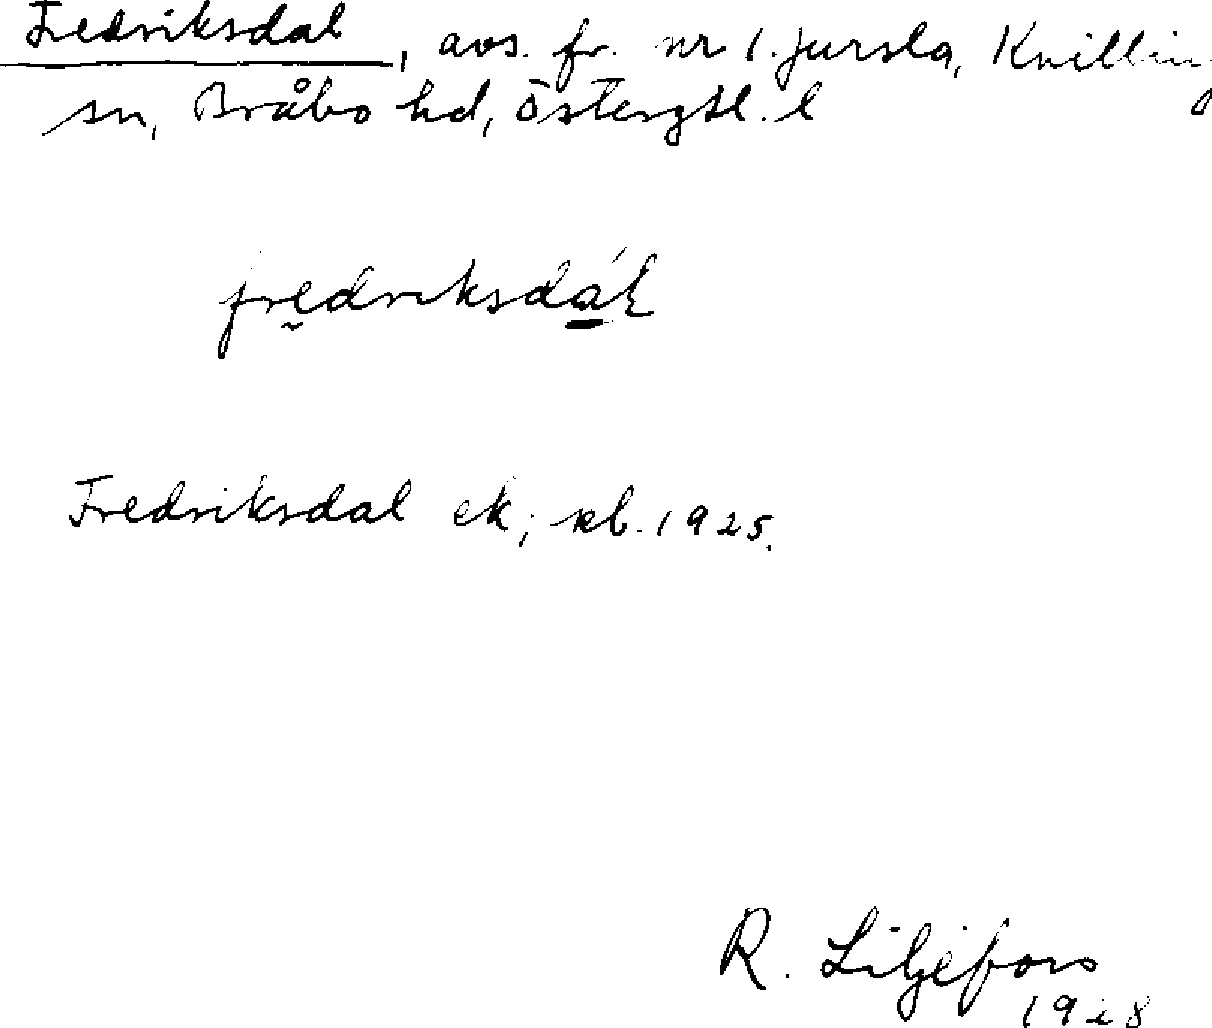 Fredriksdal, avs. fr. nr 1 Jursla, Kvilling
sn, Bråbo hd, Östergtl. l
fredriksdál
Fredriksdal ek; jrb. 1925.
R. Liljefors
1928